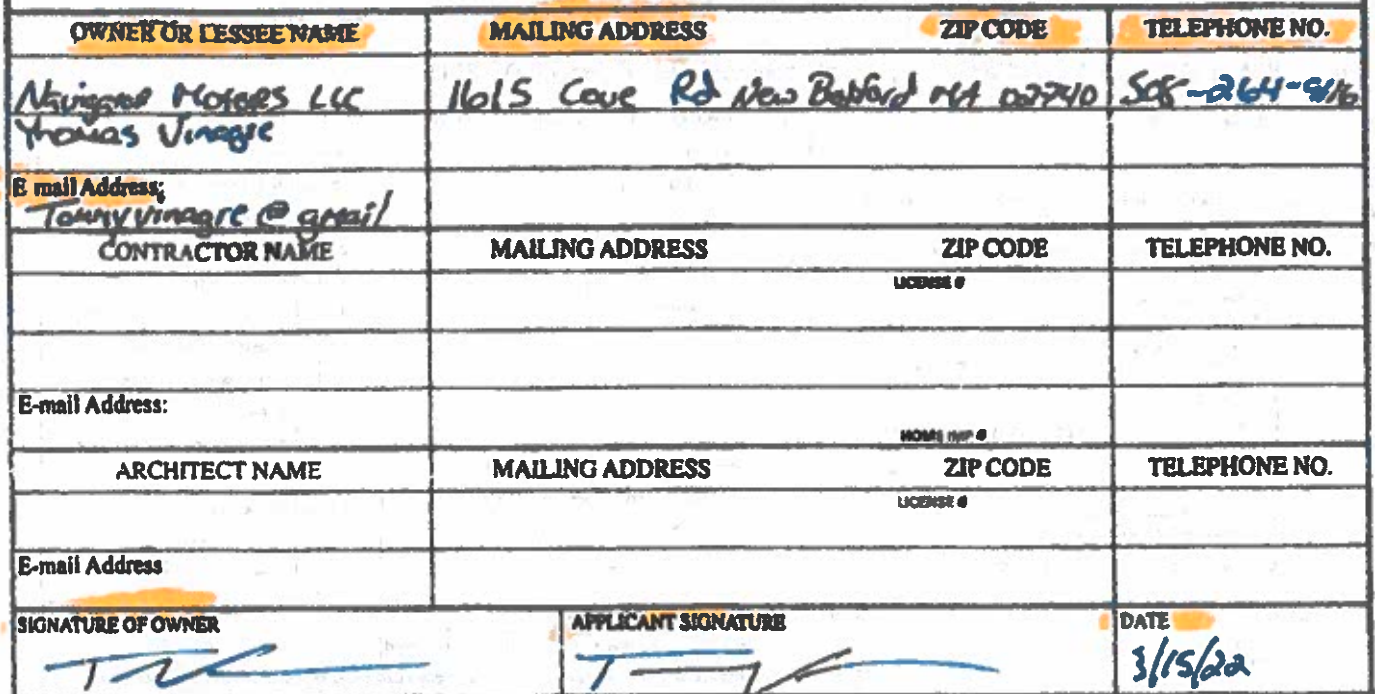 OWNER OR LESSEE NAME MAILING ADDRESS ZIP CODE TELEPHONE NO.
Navigator Motors LLC 1615 Cove Rd New Bedford MA 02740 508-264-
Thomas Vinagre
E mail Address:
Tommyvinagre@gmail
CONTRACTOR NAME MAILING ADDRESS ZIP CODE TELEPHONE NO.
LICENSE #
E-mail Address:
HOME IMP #
ARCHITECT NAME MAILING ADDRESS ZIP CODE TELEPHONE NO.
LICENSE #
E-mail Address
SIGNATURE OF OWNER APPLICANT SIGNATURE DATE
3/15/22